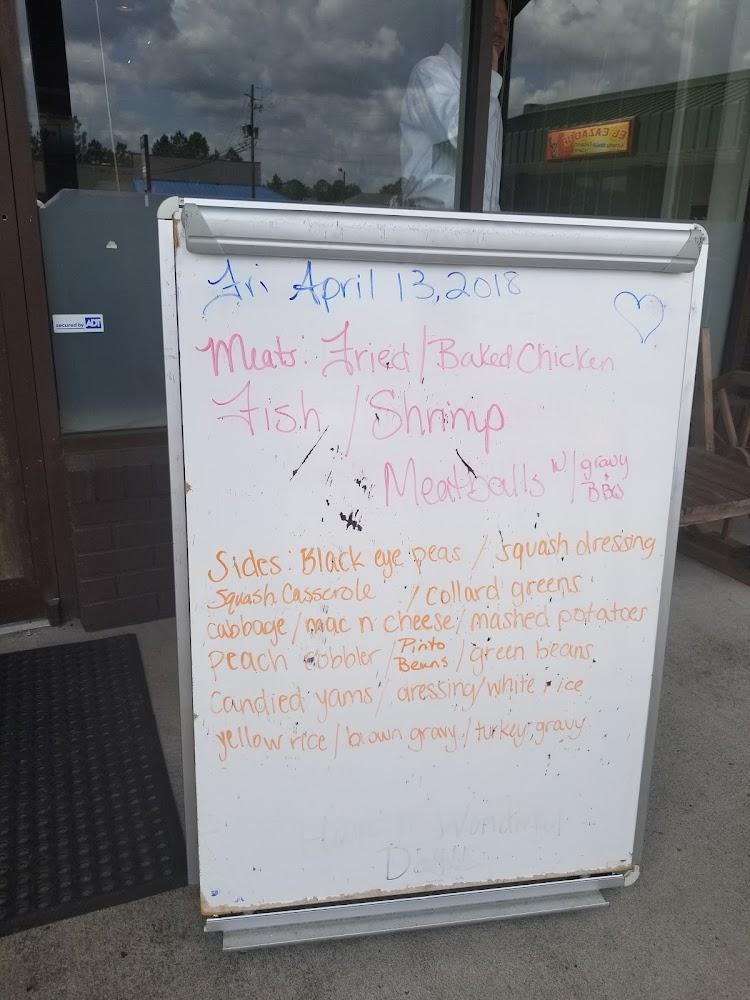 Fri April 13, 2018
Meats: Fried / Baked Chicken
Fish / Shrimp
Meatballs w/ gravy + BBQ
Sides: Black eye peas / Squash dressing
Squash Casserole / collard greens
cabbage / mac n cheese / mashed potatoes
peach cobbler / Pinto Beans / green beans
candied yams / dressing / white rice
yellow rice / brown gravy / turkey gravy
Have A Wonderful
Day
secured by ADT